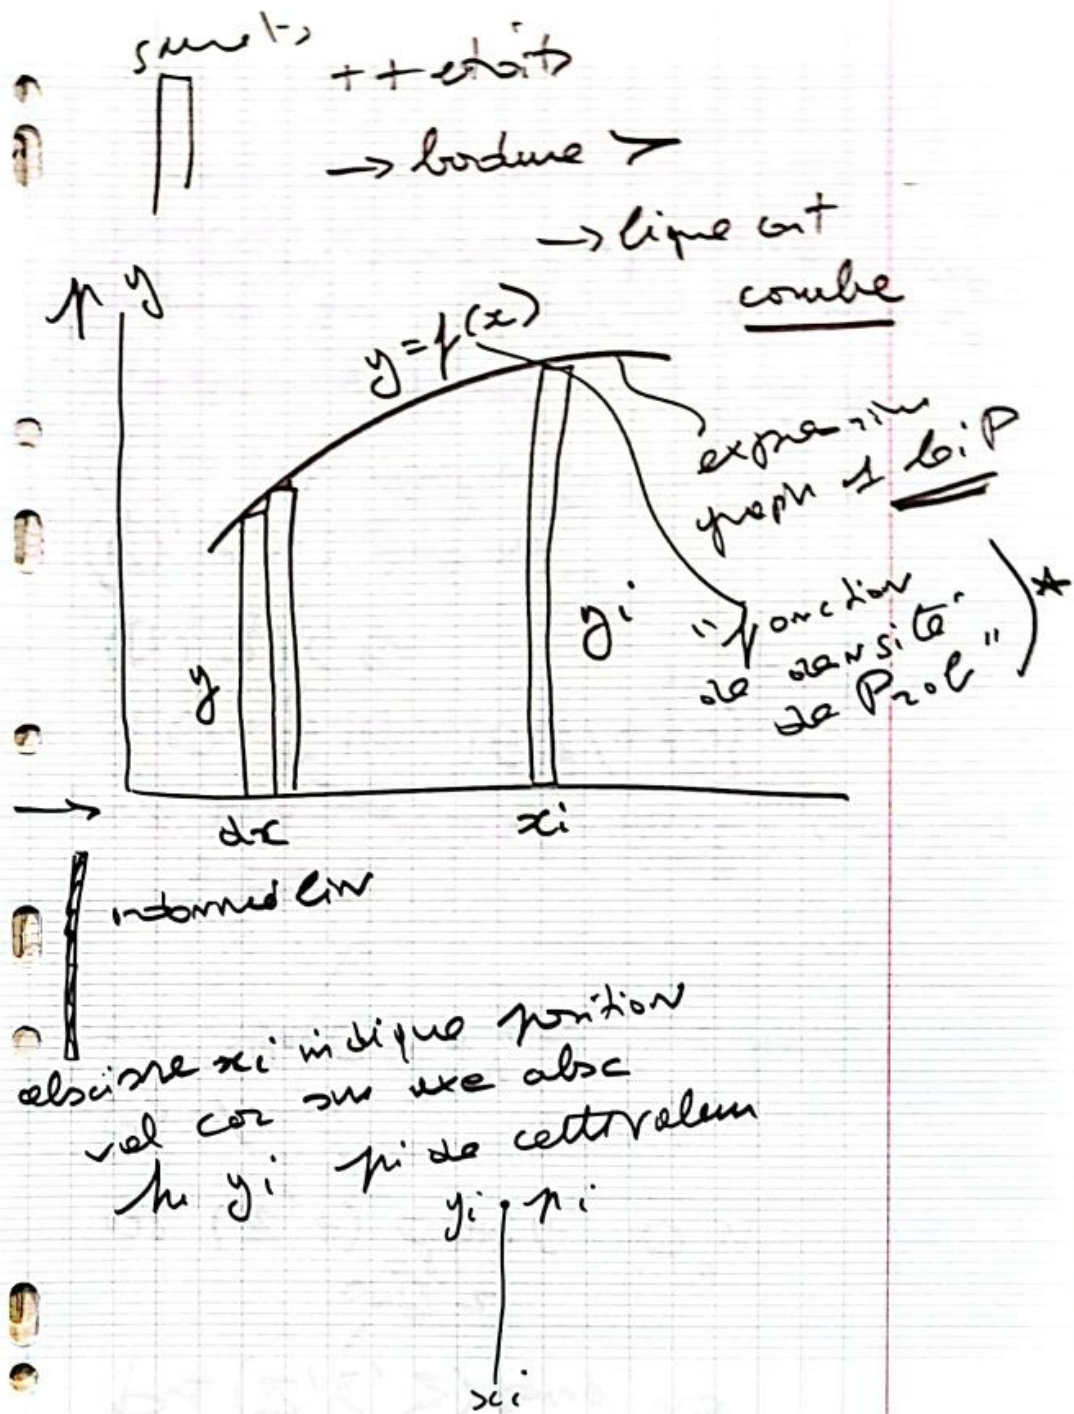 sommets
++ etroits
→ bordure >
→ ligne cont
courbe
p y
y = f(x)
expression
graph 1 loi P
y
yi
"fonction
de densité
de Prob" *
dx
xi
→
abscisse xi indique position
val cor sur axe absc
h yi pi de cette valeur
yi pi
xi